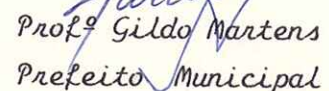 Profº Gildo Martens
Prefeito Municipal